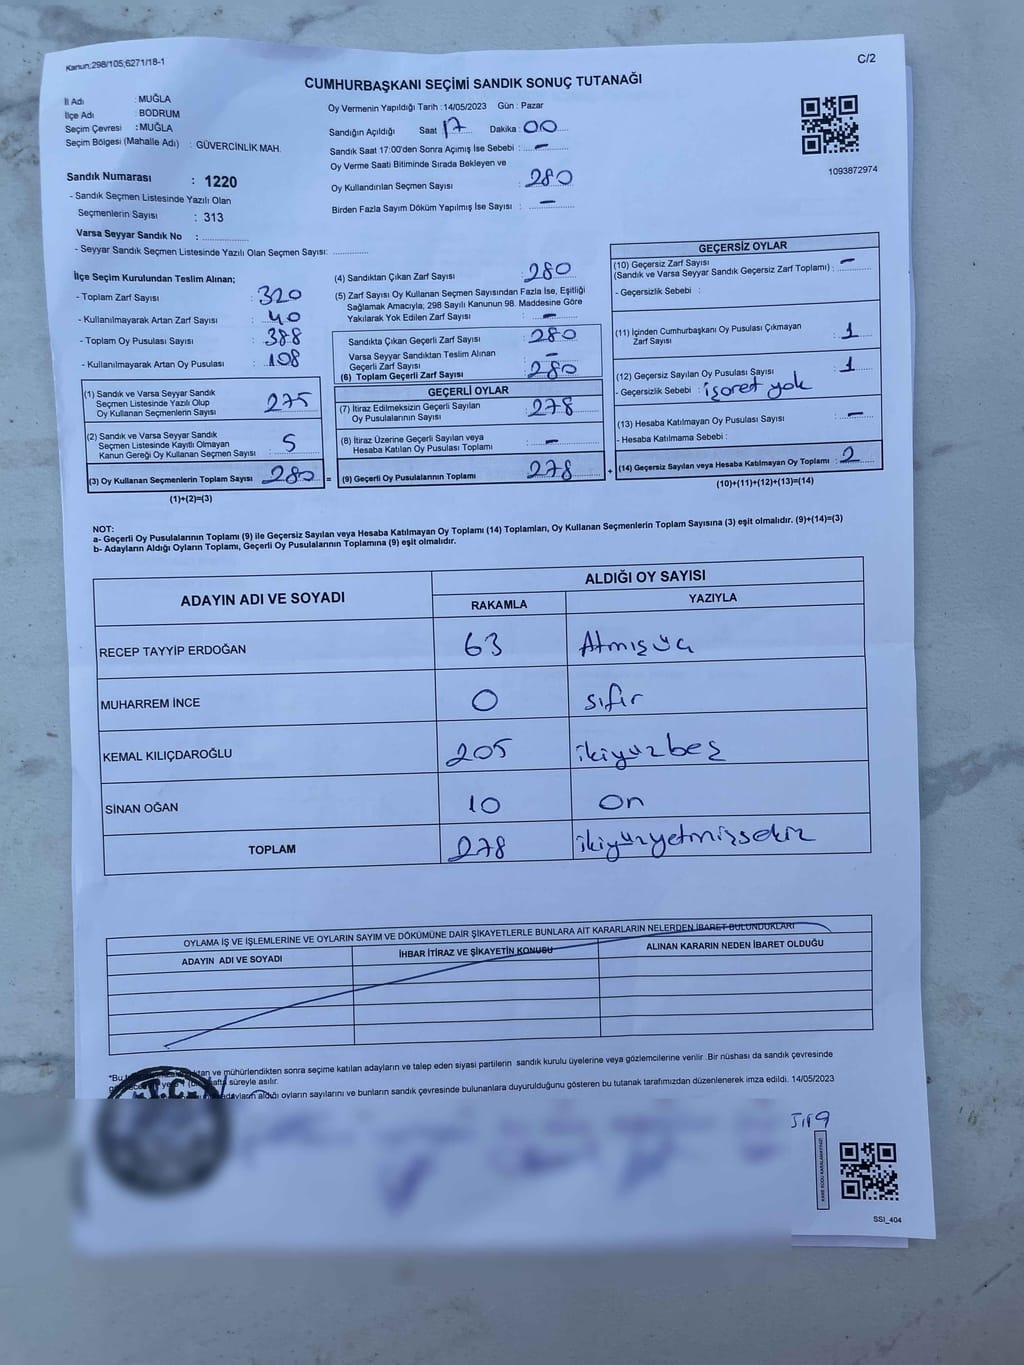 Kanun;298/105;6271/18-1
C/2
CUMHURBAŞKANI SEÇİMİ SANDIK SONUÇ TUTANAĞI
İl Adı : MUĞLA
İlçe Adı : BODRUM
Seçim Çevresi : MUĞLA
Seçim Bölgesi (Mahalle Adı) : GÜVERCİNLİK MAH.
Sandık Numarası : 1220
- Sandık Seçmen Listesinde Yazılı Olan
Seçmenlerin Sayısı : 313
Varsa Seyyar Sandık No :
- Seyyar Sandık Seçmen Listesinde Yazılı Olan Seçmen Sayısı:
Oy Vermenin Yapıldığı Tarih :14/05/2023 Gün : Pazar
Sandığın Açıldığı Saat 17 Dakika : 00
Sandık Saat 17:00'den Sonra Açımış İse Sebebi : -
Oy Verme Saati Bitiminde Sırada Bekleyen ve
Oy Kullandırılan Seçmen Sayısı : 280
Birden Fazla Sayım Döküm Yapılmış İse Sayısı : -
1093872974
İlçe Seçim Kurulundan Teslim Alınan;
- Toplam Zarf Sayısı : 320
- Kullanılmayarak Artan Zarf Sayısı : 40
- Toplam Oy Pusulası Sayısı : 388
- Kullanılmayarak Artan Oy Pusulası : 108
(1) Sandık ve Varsa Seyyar Sandık
Seçmen Listesinde Yazılı Olup
Oy Kullanan Seçmenlerin Sayısı : 275
(2) Sandık ve Varsa Seyyar Sandık
Seçmen Listesinde Kayıtlı Olmayan
Kanun Gereği Oy Kullanan Seçmen Sayısı : 5
(3) Oy Kullanan Seçmenlerin Toplam Sayısı : 280
(1)+(2)=(3)
(4) Sandıktan Çıkan Zarf Sayısı : 280
(5) Zarf Sayısı Oy Kullanan Seçmen Sayısından Fazla İse, Eşitliği
Sağlamak Amacıyla; 298 Sayılı Kanunun 98. Maddesine Göre
Yakılarak Yok Edilen Zarf Sayısı : -
Sandıkta Çıkan Geçerli Zarf Sayısı : 280
Varsa Seyyar Sandıktan Teslim Alınan
Geçerli Zarf Sayısı : -
(6) Toplam Geçerli Zarf Sayısı : 280
GEÇERLİ OYLAR
(7) İtiraz Edilmeksizin Geçerli Sayılan
Oy Pusulalarının Sayısı : 278
(8) İtiraz Üzerine Geçerli Sayılan veya
Hesaba Katılan Oy Pusulası Toplamı : -
= (9) Geçerli Oy Pusulalarının Toplamı : 278 +
GEÇERSİZ OYLAR
(10) Geçersiz Zarf Sayısı
(Sandık ve Varsa Seyyar Sandık Geçersiz Zarf Toplamı) : -
- Geçersizlik Sebebi :
(11) İçinden Cumhurbaşkanı Oy Pusulası Çıkmayan
Zarf Sayısı : 1
(12) Geçersiz Sayılan Oy Pusulası Sayısı : 1
- Geçersizlik Sebebi : işaret yok
(13) Hesaba Katılmayan Oy Pusulası Sayısı : -
- Hesaba Katılmama Sebebi :
(14) Geçersiz Sayılan veya Hesaba Katılmayan Oy Toplamı : 2
(10)+(11)+(12)+(13)=(14)
NOT:
a- Geçerli Oy Pusulalarının Toplamı (9) ile Geçersiz Sayılan veya Hesaba Katılmayan Oy Toplamı (14) Toplamları, Oy Kullanan Seçmenlerin Toplam Sayısına (3) eşit olmalıdır. (9)+(14)=(3)
b- Adayların Aldığı Oyların Toplamı, Geçerli Oy Pusulalarının Toplamına (9) eşit olmalıdır.
ADAYIN ADI VE SOYADI ALDIĞI OY SAYISI
RAKAMLA YAZIYLA
RECEP TAYYİP ERDOĞAN 63 Atmışüç
MUHARREM İNCE 0 sıfır
KEMAL KILIÇDAROĞLU 205 ikiyüzbeş
SİNAN OĞAN 10 On
TOPLAM 278 ikiyüzyetmişsekiz
OYLAMA İŞ VE İŞLEMLERİNE VE OYLARIN SAYIM VE DÖKÜMÜNE DAİR ŞİKAYETLERLE BUNLARA AİT KARARLARIN NELERDEN İBARET BULUNDUKLARI
ADAYIN ADI VE SOYADI İHBAR İTİRAZ VE ŞİKAYETİN KONUSU ALINAN KARARIN NEDEN İBARET OLDUĞU
*Bu ve mühürlendikten sonra seçime katılan adayların ve talep eden siyasi partilerin sandık kurulu üyelerine veya gözlemcilerine verilir .Bir nüshası da sandık çevresinde
süreyle asılır.
aldığı oyların sayılarını ve bunların sandık çevresinde bulunanlara duyurulduğunu gösteren bu tutanak tarafımızdan düzenlenerek imza edildi. 14/05/2023
T.C.
KARE KODU KARALAMAYINIZ!
SSI_404